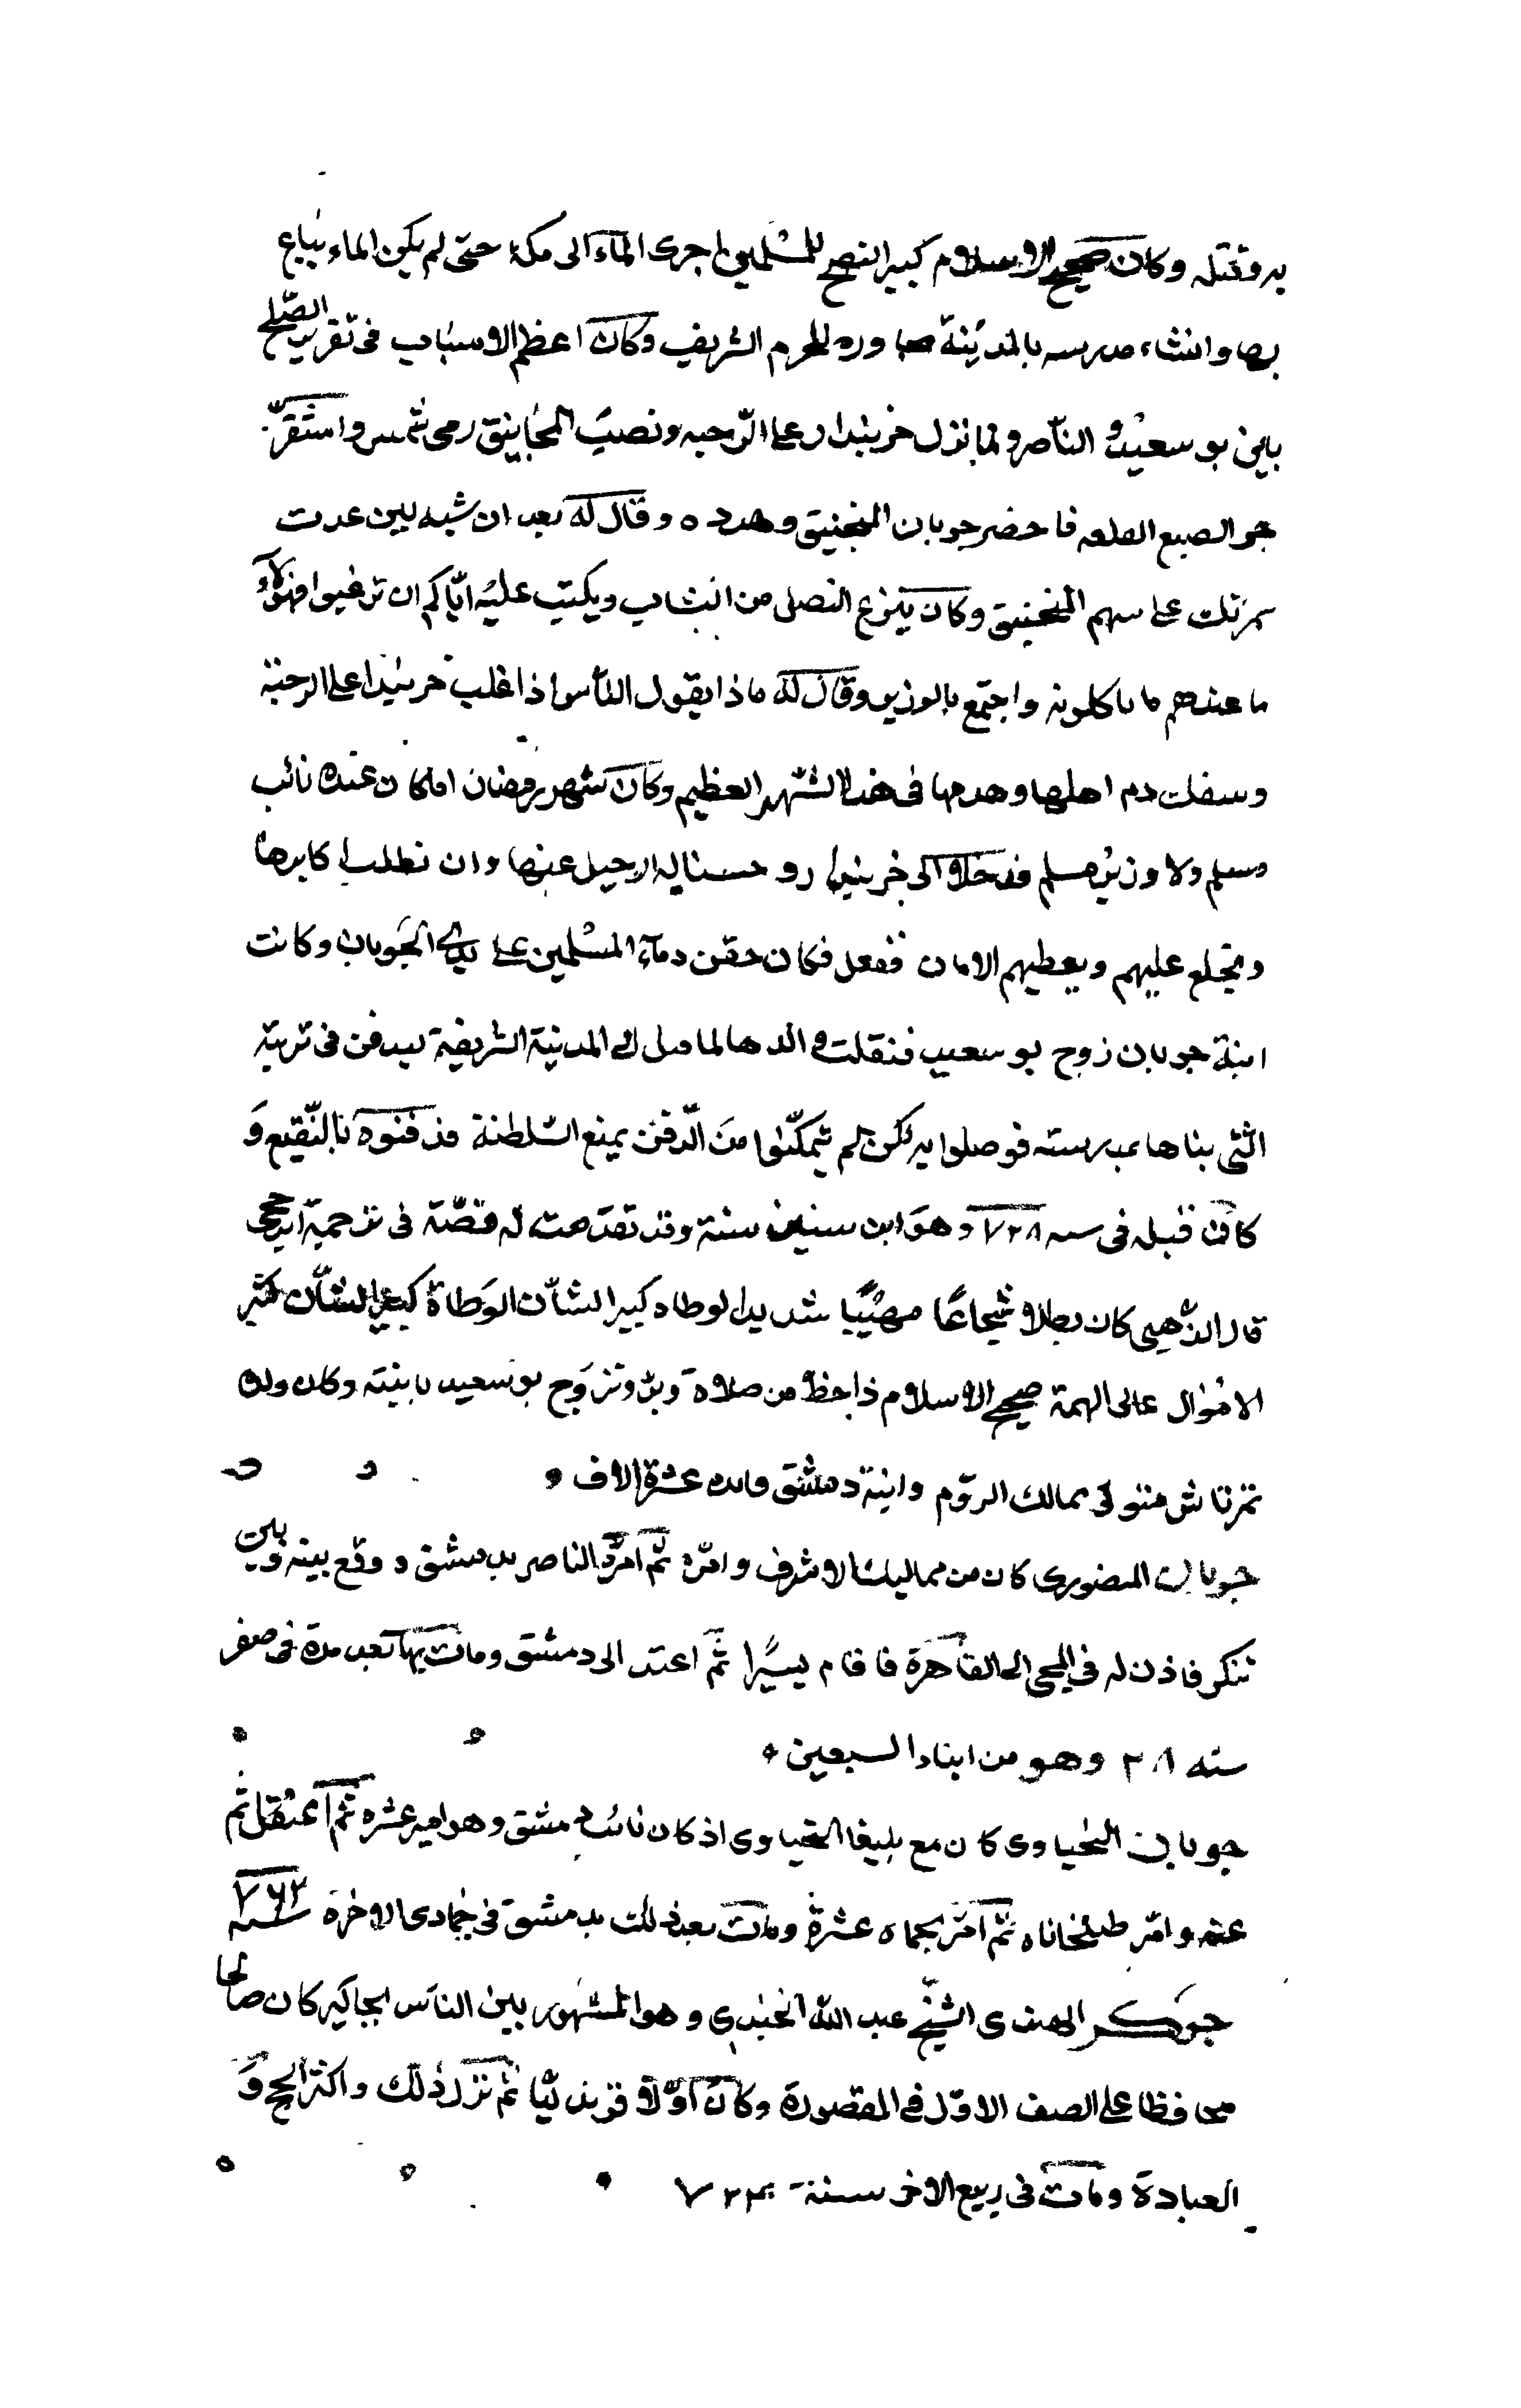 به وقتله وكان صحيح الاسلام كبير النصح للمسلمين اجرى الماء الى مكة حتى لم يكن الماء يباع
بها وانشاء مدرسه بالمدينة مجاوره للحرم الشريف وكان اعظم الاسباب فى تقرير الصلح
بين بو سعيد و الناصر ولما نزل خربندا على الرحبه ونصب المجانيق رمى واستقر
القلعه فاحضر جوبان المنجنيق وهدده وقال له بعد ان
على سهم المنجنيق وكان ينزع النصل من النشاب ويكتب عليه اياكم ان فهولاء
ما عندهم ما ياكلونه واجتمع بالوزير وقال له ماذا يقول الناس اذا غلب خربندا على الرحبة
وسفك دم اهلها وهدمها فى هذا الشهر العظيم وكان شهر رمضان اماكان عنده نائب
مسلم ولا وزير مسلم فدخلا الى خربندا وحسنا له الرحيل عنها وان نطلب اكابرها
ويخلع عليهم ويعطيهم الامان ففعل فكان حقن دماء المسلمين على يدى الجوبان وكانت
ابنة جوبان زوج بو سعيد فنقلت والدها لما الى المدينة الشريفة ليدفن فى تربته
التى بناها بمدرسته فوصلوا به لكن لم يتمكنوا من الدفن بمنع السلطنة فدفنوه بالبقيع و
كان قبله فى سنه ٧٢٨ وهو ابن ستين سنة وقد تقدمت له قصة فى ترجمة
قال الذهبى كان بطلا شجاعا مهيبا شديد الوطاه كبير الشان الوطاة كبير الشان كثير
الاموال عالى الهمة صحيح الاسلام ذا حظ من صلاة وبر وتزوج بو سعيد بابنته وكان ولده
تمرتاش متولى ممالك الروم وابنة دمشق عشرة الاف
جوبان المنصورى كان من مماليك الاشرف وامره ثم امره الناصر بدمشق ووقع بينه وبين
تنكز فاذن له فى المجى الى القاهرة فاقام يسيرا ثم اعيد الى دمشق ومات بها بعد مدة فى صفر
سنه ٢٨ وهو من ابناء السبعين
جوبان اليحياوى كان مع يلبغا اليحياوى اذ كان نائب دمشق وهو امير عشره ثم اعتقل ثم
عنه وامر طبلخاناه ثم امر بحماه عشرة ومات بعد ذلك بدمشق فى جمادى الاخرة سنه ٧٦٢
جوكر الهندى الشيخ عبد الله وهو المشهور بين الناس بجاكير كان صالحا
محافظا على الصف الاول فى المقصورة وكان اولا ثم ترك ذلك واكثر الحج و
العبادة ومات فى ربيع الاخر سنة